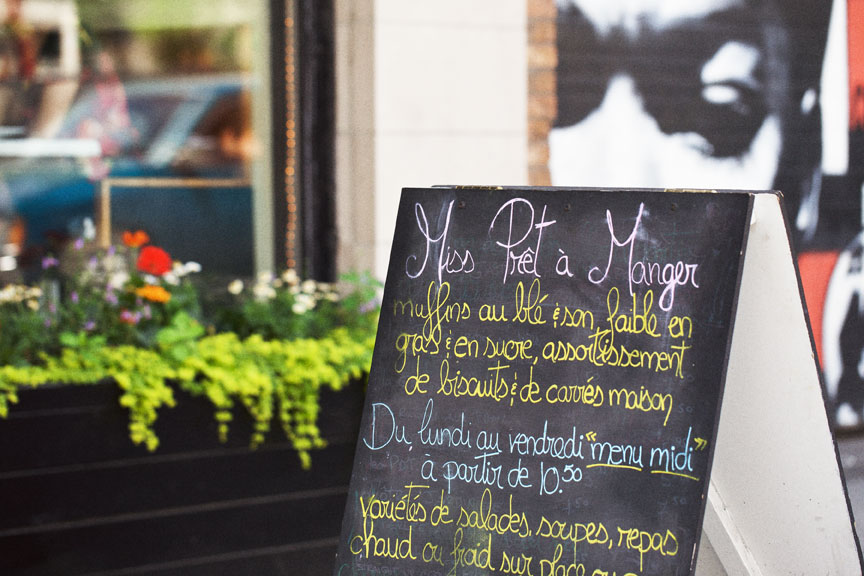 Miss Prêt à Manger
muffins au blé & son, faible en
gras & en sucre, assortissement
de biscuits & de carrés maison
Du lundi au vendredi "menu midi"
à partir de 10.50
variétés de salades, soupes, repas
chaud ou froid sur place ou